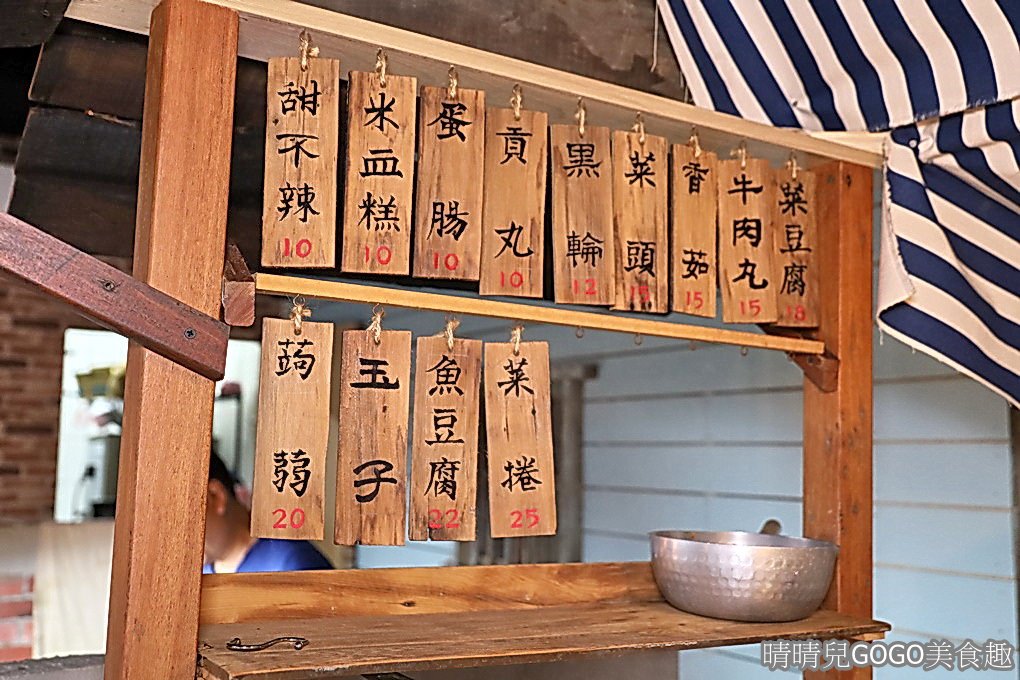 甜不辣
10
米血糕
10
蛋腸
10
貢丸
10
黑輪
12
菜頭
15
香菇
15
牛肉丸
15
菜豆腐
18
蒟蒻
20
玉子
魚豆腐
22
菜捲
25
晴晴兒GOGO美食趣